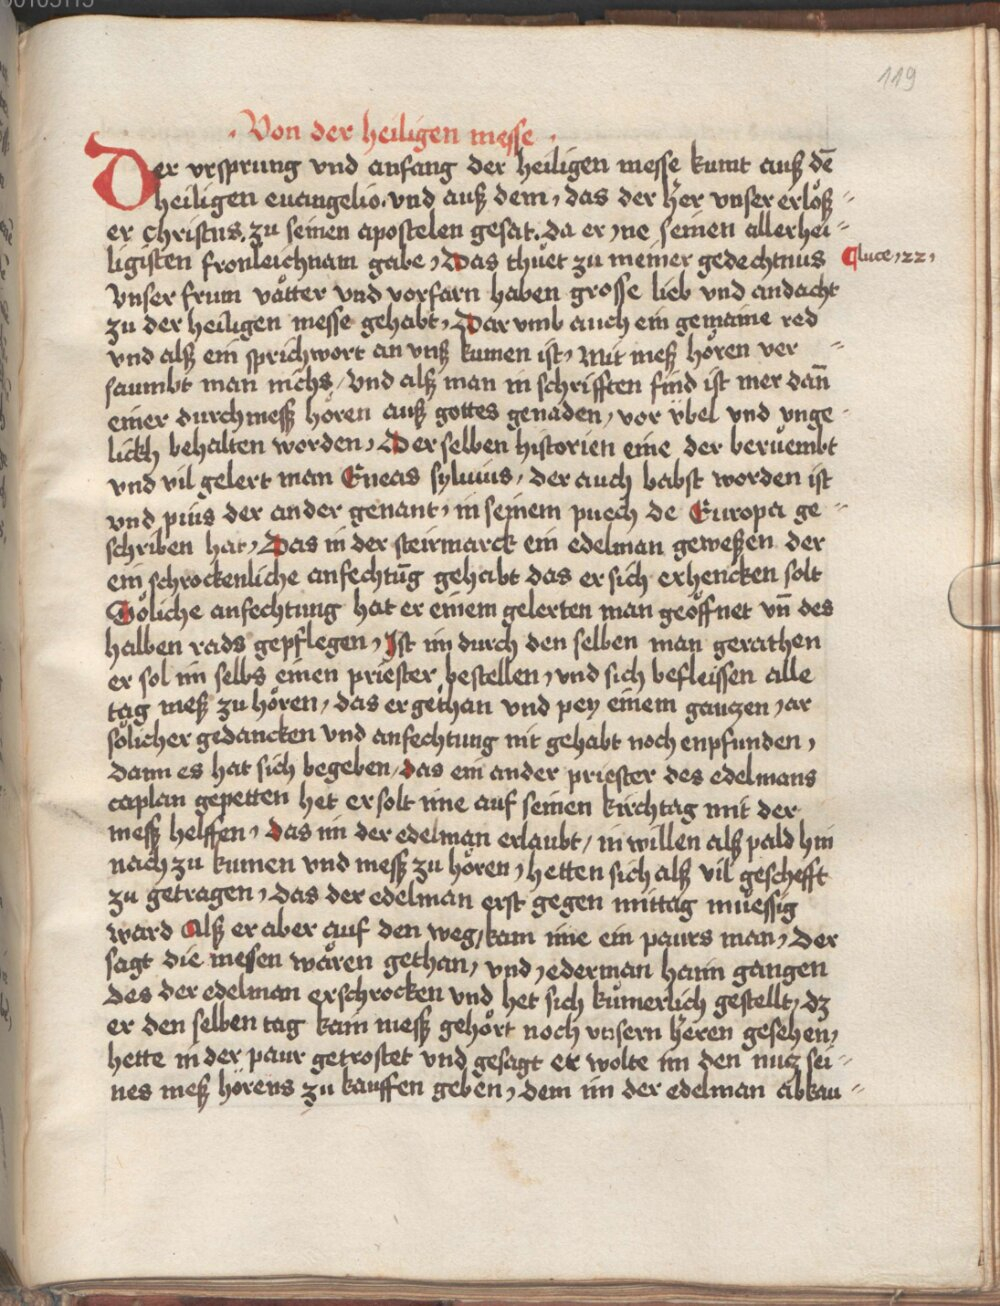 119
. Von der heiligen messe .
Der vrsprung vnd anfang der heiligen messe kumt auß dē
heiligen euangelio. vnd auß dem, das der her vnser erlöß-
er christus. zu seinen apostelen gesat. da er ȷne seinen allerhei-
ligisten fronleichnam gabe, Das thůet zu meiner gedechtnus
¶luce, 22,
Vnser frum våtter vnd vorfarn haben grosse lieb vnd andacht
zu der heiligen messe gehabt, Dar vmb auch ein gemaine red
vnd alß ein sprichwort an vnß kumen ist, Mit meß hören ver-
saumbt man nichs, vnd alß man in schrifften find ist mer dañ
einer durch meß hören auß gottes genaden, vor vbel vnd vnge-
lickh behalten worden, Der selben historien eine der berůembt
vnd vil gelert man Eneas syluius, der auch babst worden ist
vnd pius der ander genant, in seinem puech de Europa ge-
schriben hat, Das in der steirmarck ein edelman geweßen der
ein schrockenliche anfechtūg gehabt das er sich erhencken solt
Söliche anfechtung hat er einem gelerten man geöffnet vñ des
halben rads gepflegen, Ist im durch den selben man gerathen
er sol im selbs einen priester bestellen, vnd sich befleissen alle
tag meß zu hören, das er gethan vnd pey einem ganzen ȷar
solicher gedancken vnd anfechtung nit gehabt noch enpfunden,
Dann es hat sich begeben, das ein ander priester des edelmans
caplan gepetten het er solt ime auf seinen kirchtag mit der
meß helffen, das im der edelman erlaubt, in willen alß pald hin
nach zu kumen vnd meß zu hören, hetten sich alß vil geschefft
zu getragen, das der edelman erst gegen mittag můessig
ward Alß er aber auf den weg, kam ime ein paurs man, Der
sagt die messen wåren gethan, vnd ȷederman haim gangen
des der edelman erschrocken vnd het sich kůmerlich gestellt, dz
er den selben tag kain meß gehört noch vnsern heren gesehen,
hette in der paur getrostet vnd gesagt er wolte im den nuz sei-
nes meß hörens zu kauffen geben, dem im der edelman abkau-